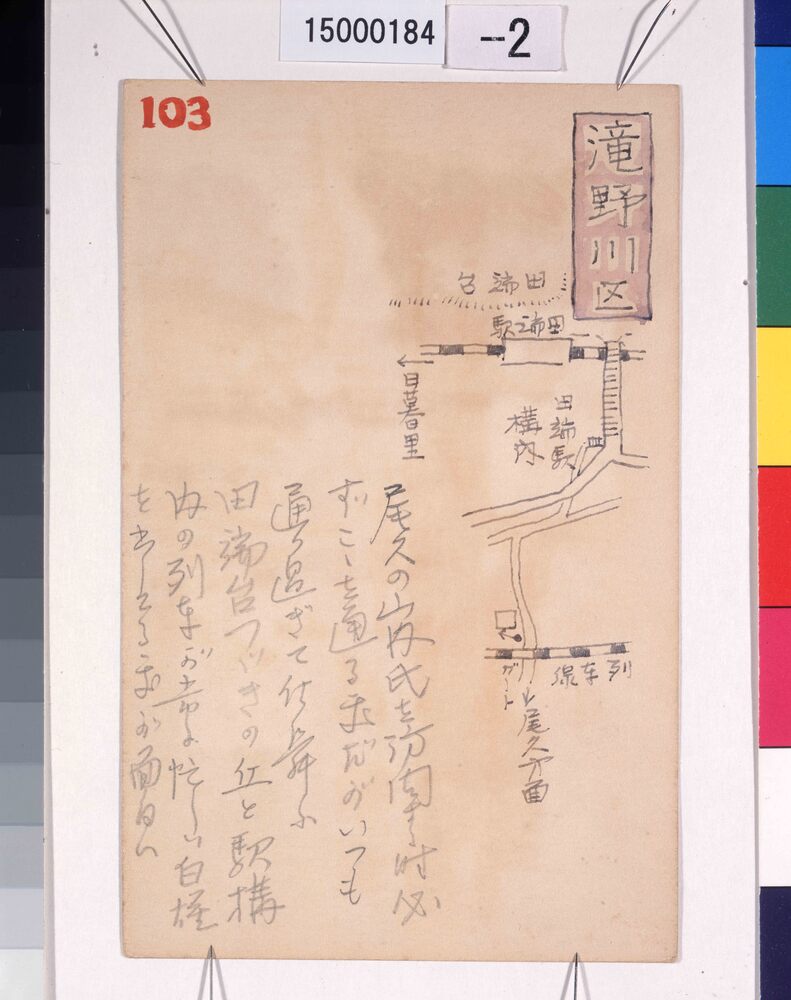 15000184
-2
103
滝野川区
田端台
田端駅
日暮里
田端駅
構内
列車線
ガード
尾久方面
尾久の山内氏を訪問する時必
ずこゝを通る所だがいつも
通り過ぎて仕舞ふ
田端台つゞきの丘と駅構
内の列車が常に忙しい
を出してる所が面白い